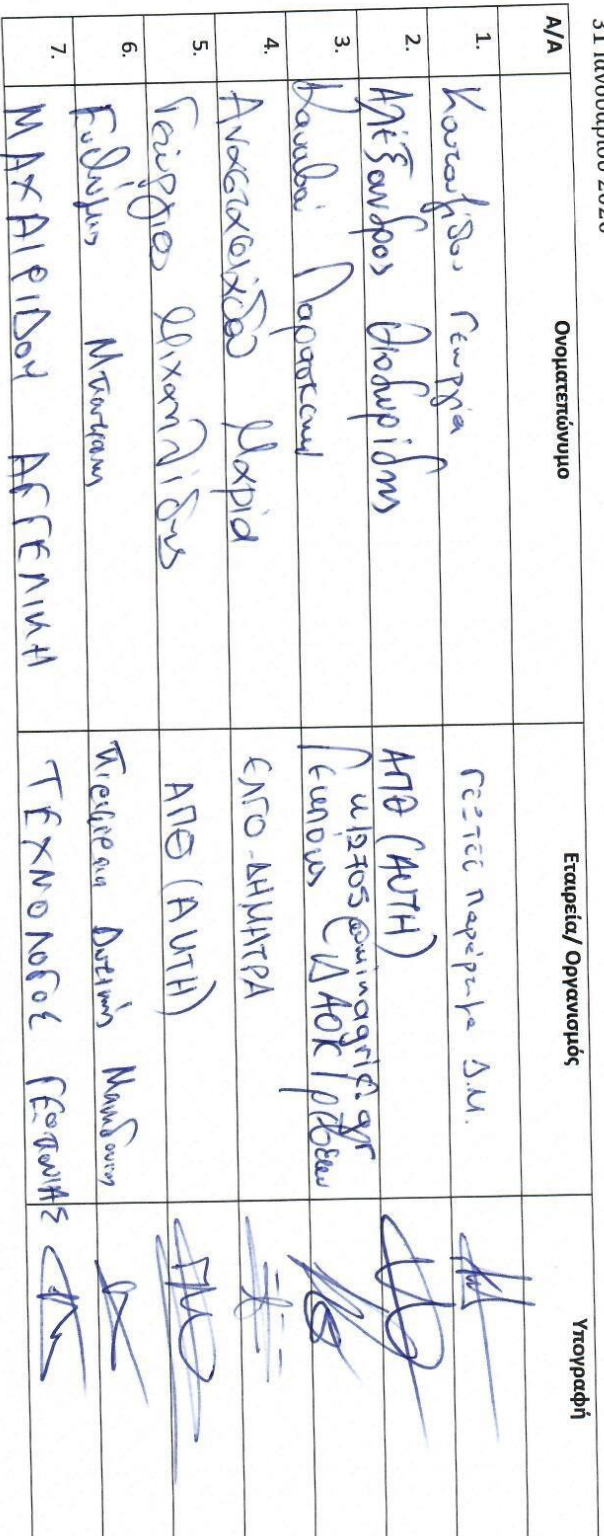 31 Ιανουαρίου 2020
Α/Α Ονοματεπώνυμο Εταιρεία/ Οργανισμός Υπογραφή
1. Γεωργία ΓΕΩΤΕΕ Παράρτημα Δ.Μ.
2. Αλέξανδρος Θεοδωρίδης ΑΠΘ (AUTH)
3. Καναβά Παρασκευή u12705@minagric.gr
Γεωπόνος ΔΑΟΚ Γρεβενών
4. Αναστασιάδου Μαρία ΕΛΓΟ-ΔΗΜΗΤΡΑ
5. Γεώργιος Μιχαηλίδης ΑΠΘ (AUTH)
6. Ευθύμιος Περιφέρεια Δυτικής Μακεδονίας
7. ΜΑΧΑΙΡΙΔΟΥ ΑΓΓΕΛΙΚΗ ΤΕΧΝΟΛΟΓΟΣ ΓΕΩΠΟΝΙΑΣ